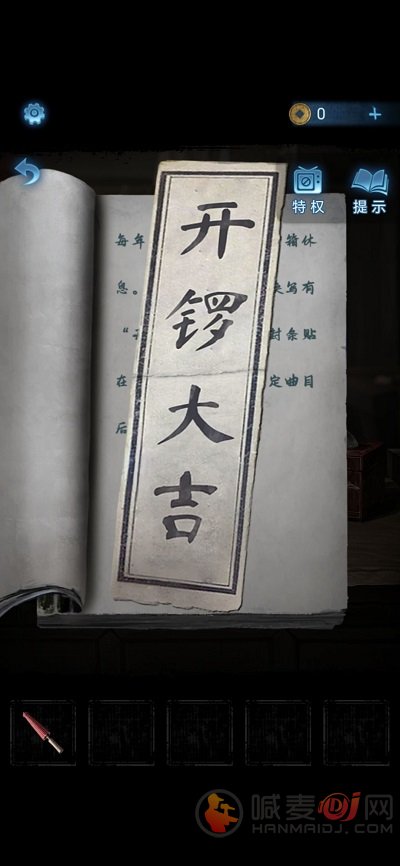 0
特权
提示
开锣大吉
每年 箱休
息。 写有
封条贴
在 定曲目
后
喊麦DJ网
HANMAIDJ.COM